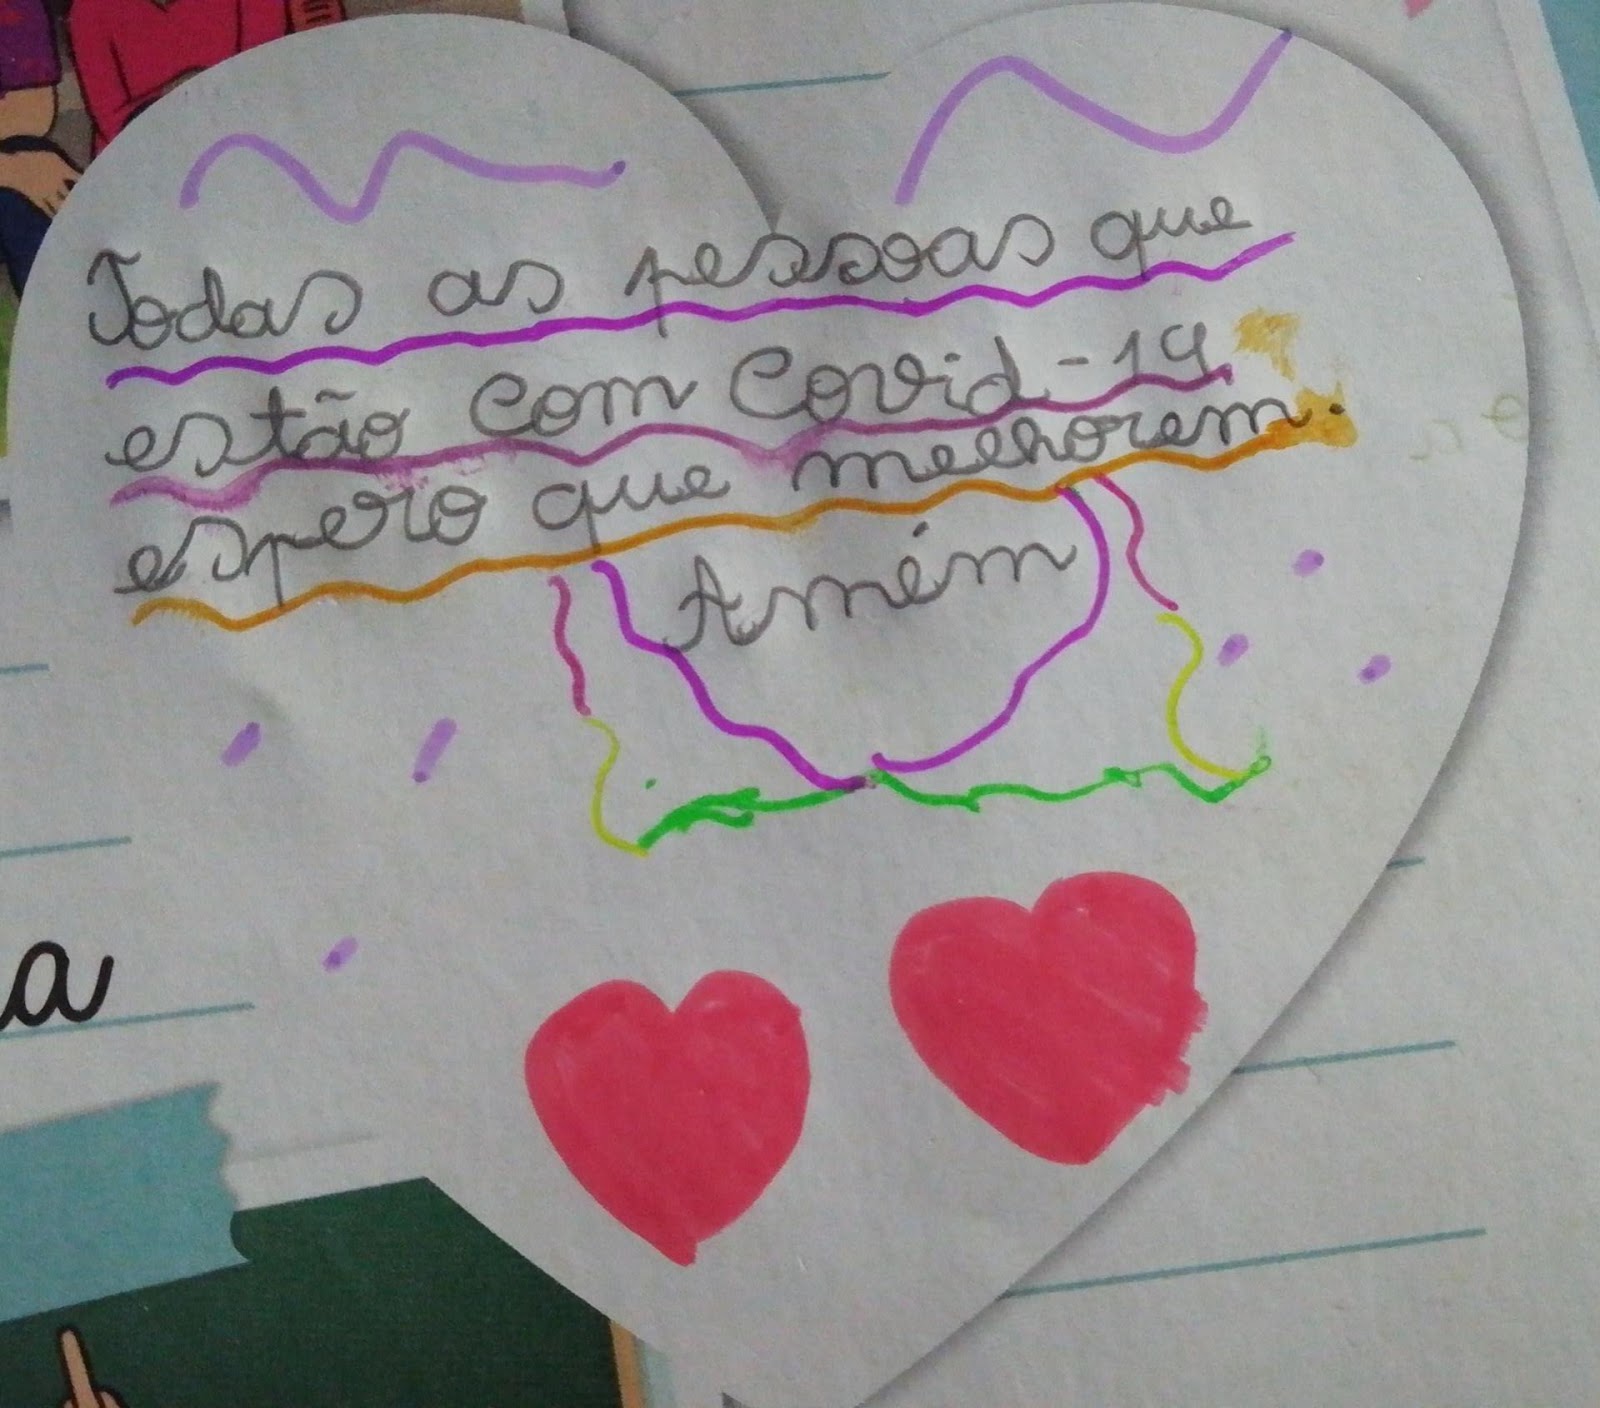 Todas as pessoas que
estão com Covid-19
espero que melhorem.
Amém
a